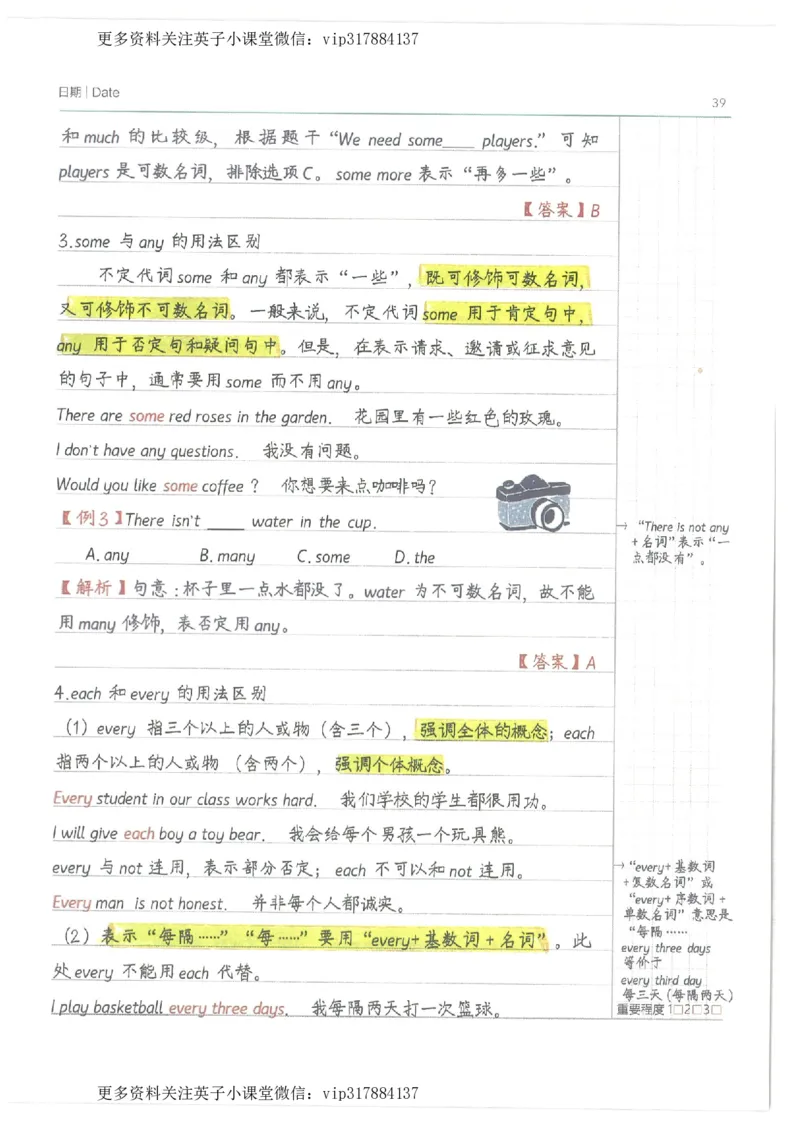 更多资料关注英子小课堂微信：vip317884137
日期 | Date
39
和 much 的比较级，根据题干“We need some____ players.”可知
players 是可数名词，排除选项C。some more 表示“再多一些”。
【答案】B
3.some 与 any 的用法区别
不定代词 some 和 any 都表示“一些”，既可修饰可数名词，
又可修饰不可数名词。一般来说，不定代词 some 用于肯定句中，
any 用于否定句和疑问句中。但是，在表示请求、邀请或征求意见
的句子中，通常要用 some 而不用 any。
There are some red roses in the garden. 花园里有一些红色的玫瑰。
I don't have any questions. 我没有问题。
Would you like some coffee？ 你想要来点咖啡吗？
【例3】There isn't _____ water in the cup.
A. any B. many C. some D. the
【解析】句意：杯子里一点水都没了。water 为不可数名词，故不能
用 many 修饰，表否定用 any。
【答案】A
4.each 和 every 的用法区别
（1）every 指三个以上的人或物（含三个），强调全体的概念；each
指两个以上的人或物（含两个），强调个体概念。
Every student in our class works hard. 我们学校的学生都很用功。
I will give each boy a toy bear. 我会给每个男孩一个玩具熊。
every 与 not 连用，表示部分否定；each 不可以和 not 连用。
Every man is not honest. 并非每个人都诚实。
（2）表示“每隔……”“每……”要用“every+基数词+名词”。此
处 every 不能用 each 代替。
I play basketball every three days. 我每隔两天打一次篮球。
→ “There is not any
+名词”表示“一
点都没有”。
→ “every+基数词
+复数名词”或
“every+序数词+
单数名词”意思是
“每隔……
every three days
等价于
every third day
每三天（每隔两天）
重要程度 1□2□3□
更多资料关注英子小课堂微信：vip317884137